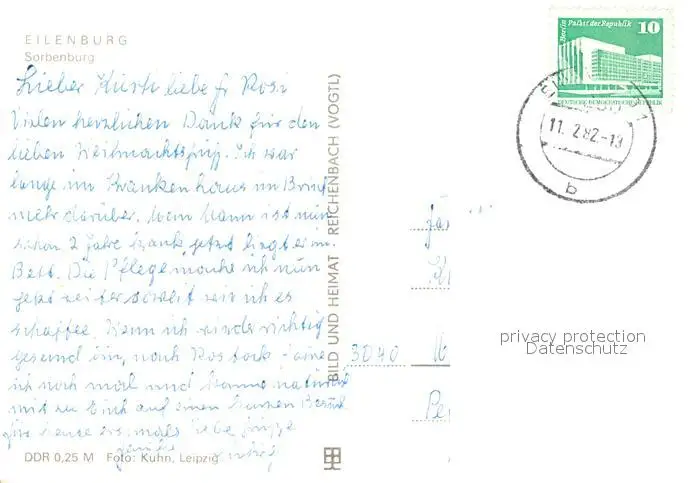 EILENBURG
Sorbenburg
Lieber Kurt liebe fr Rosi
Vielen herzlichen Dank für den
lieben Weihnachtsgruß. Ich war
lange im Krankenhaus im Brief
mehr darüber. Mein Mann ist nun
schon 2 Jahre krank jetzt liegt er im
Bett. Die Pflege mache ich nun
jetzt weiter soweit wie ich es
schaffe. Wenn ich wieder richtig
gesund bin, nach Rostock
ich noch mal und komme natürlich
mit zu Euch auf einen kurzen Besuch
für heute erstmals liebe Grüße
DDR 0,25 M Foto: Kühn, Leipzig
BILD UND HEIMAT REICHENBACH (VOGTL)
Berlin Palast der Republik 10
DEUTSCHE DEMOKRATISCHE REPUBLIK
11.2.82-13
b
3040
privacy protection
Datenschutz